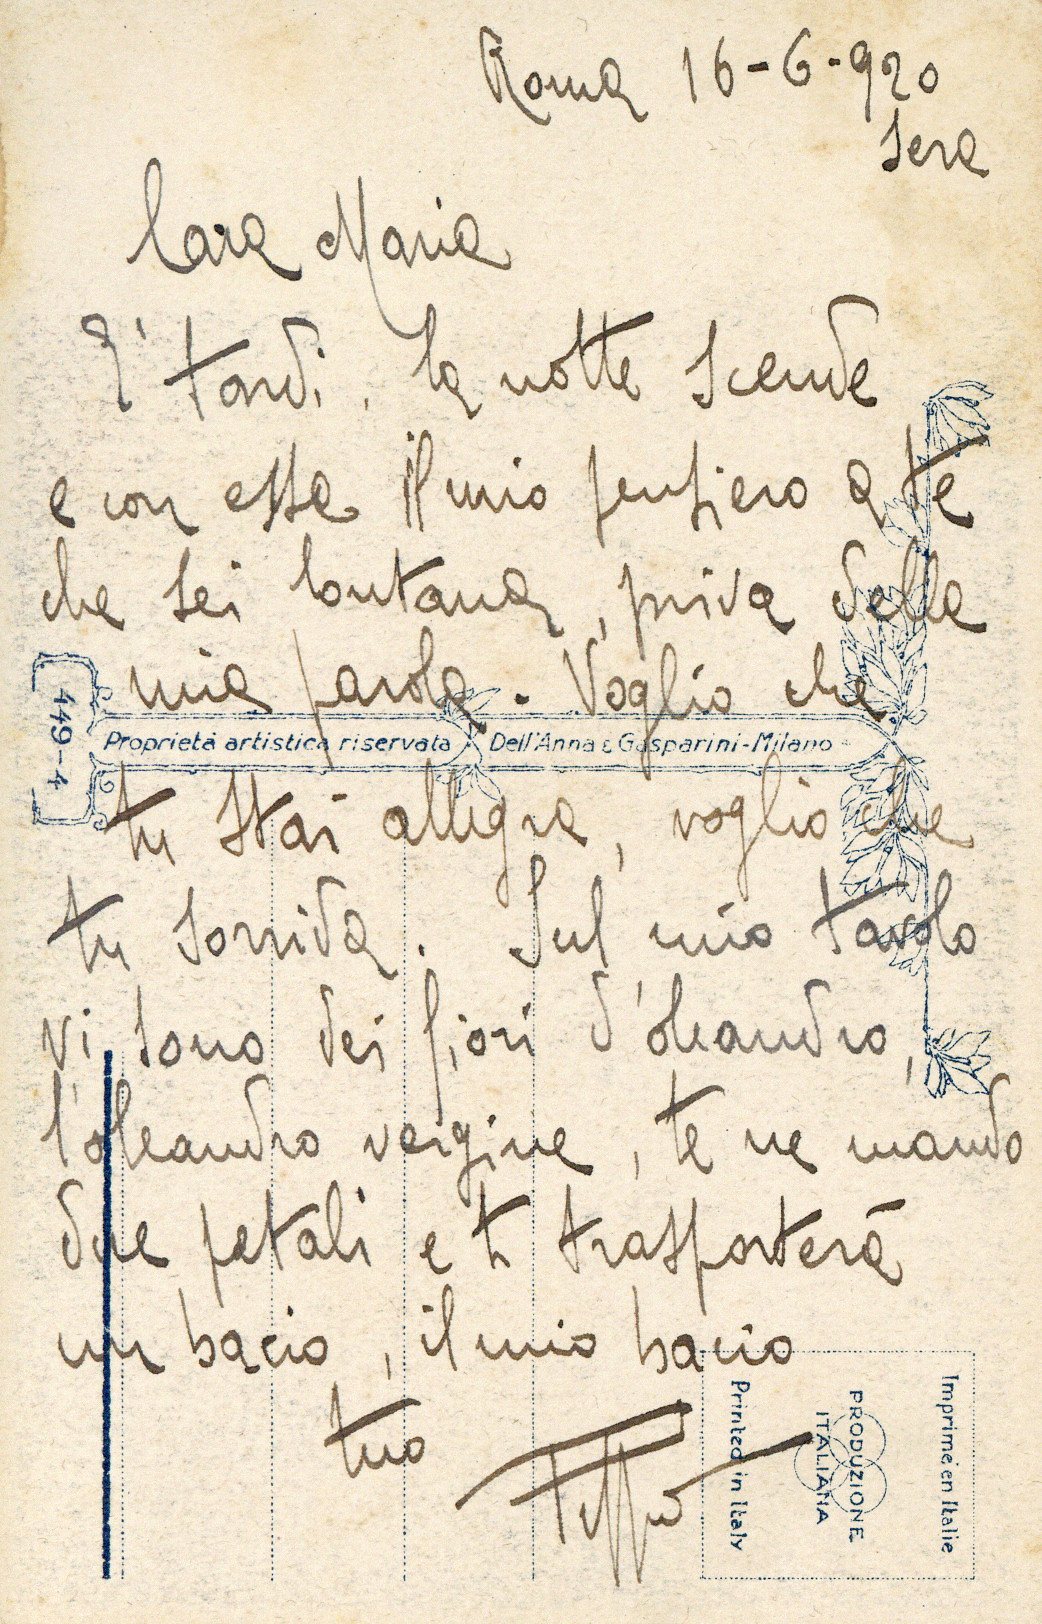 Roma 16-6-920
sera
Cara Maria
E' tardi, la notte scende
e con essa il mio pensiero a te
che sei lontana, priva della
mia parola. Voglio che
tu stai allegra, voglio che
tu sorrida. Sul mio tavolo
vi sono dei fiori d'oleandro,
l'oleandro vergine, te ne mando
due petali e ti trasporterà
un bacio, il mio bacio
tuo
449-4
Proprietà artistica riservata
Dell'Anna e Gasparini-Milano
Imprimé en Italie
PRODUZIONE
ITALIANA
Printed in Italy